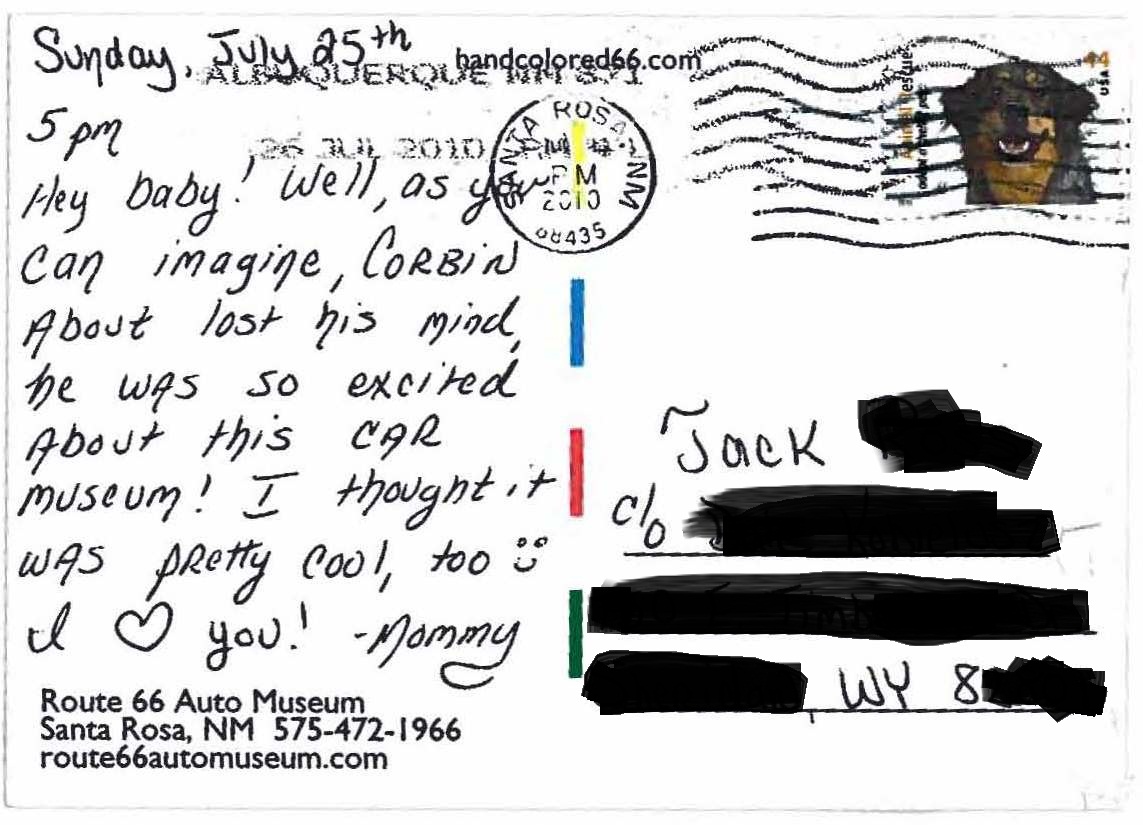 Sunday, July 25th
handcolored66.com
ALBUQUERQUE NM 871
5 pm
26 JUL 2010 PM
SANTA ROSA, NM
PM
2010
88435
44
USA
Animal Rescue
Hey baby! Well, as you
can imagine, CORBIN
About lost his mind,
he WAS so excited
About this CAR
museum! I thought it
WAS pretty cool, too
I ♡ you! -Mommy
Route 66 Auto Museum
Santa Rosa, NM 575-472-1966
route66automuseum.com
Jack
c/o
, WY 8